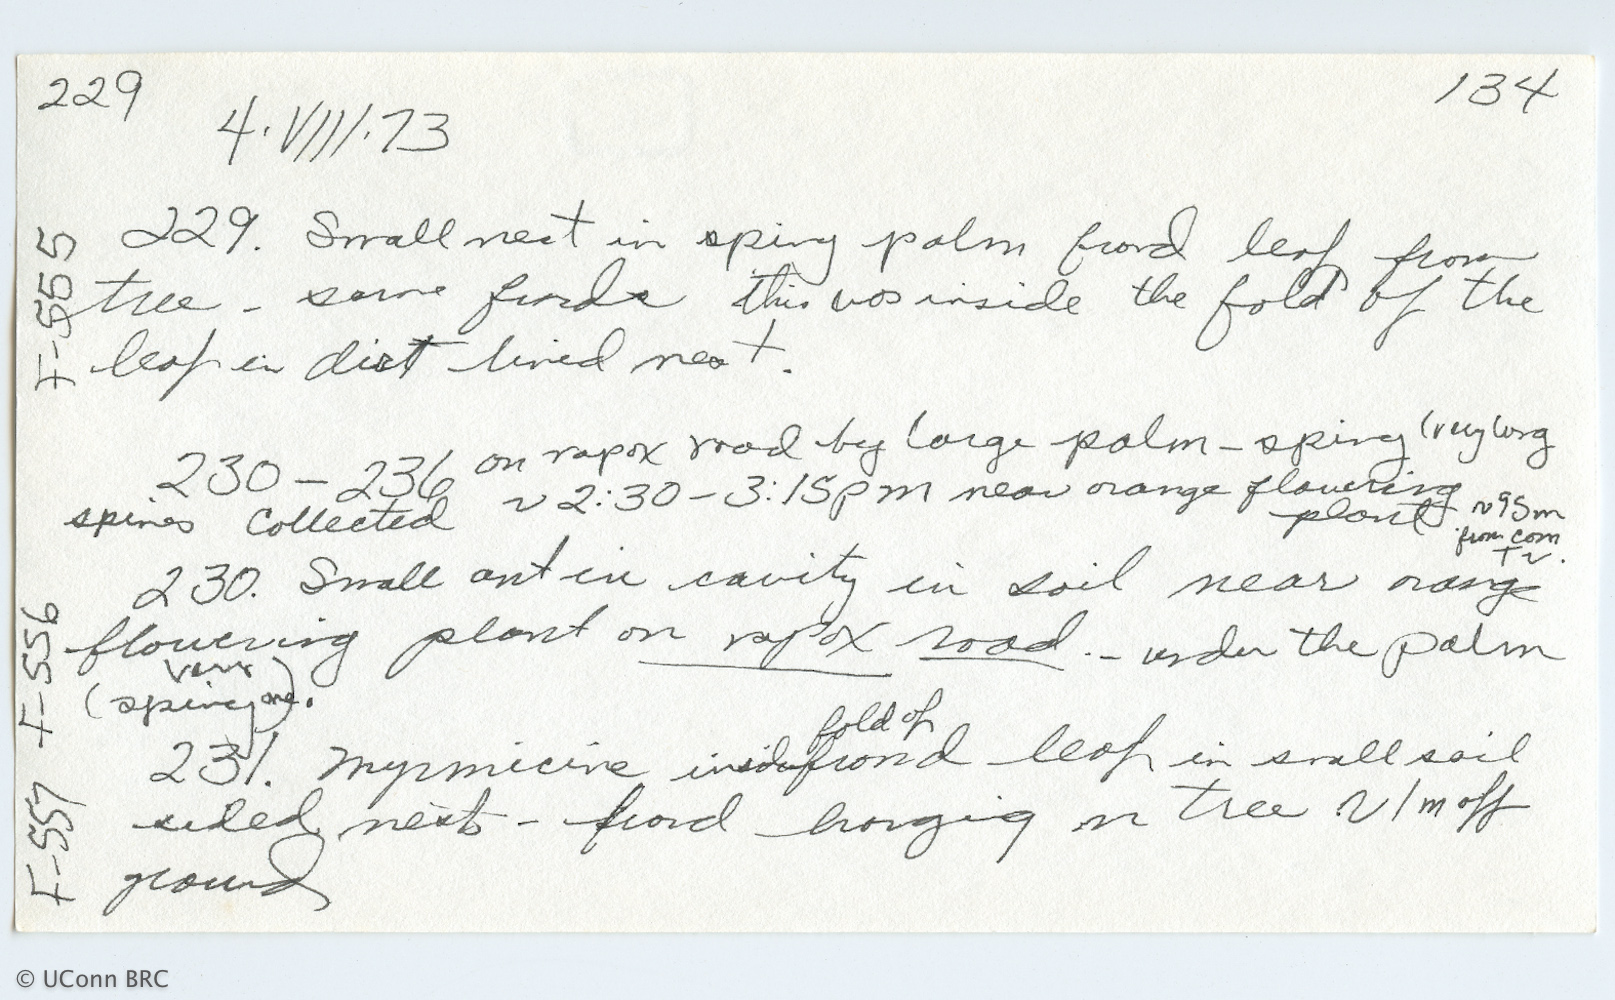 229
134
4·VIII·73
F-555
229. Small nest in spiny palm frond leaf from
tree - same fronds this was inside the fold of the
leaf in dirt lined nest.
230 - 236 on rapox road by large palm - spiny (very long
spines collected ~ 2:30 - 3:15 pm near orange flowering
plant ~95m
from com
F-556
230. Small ant in cavity in soil near orange
flowering plant on rapox road. - under the palm
(spiny very one).
F-557
231. Myrmicine inside fold of frond leaf in small soil
sided nest - frond hanging on tree ~ 1m off
ground
© UConn BRC